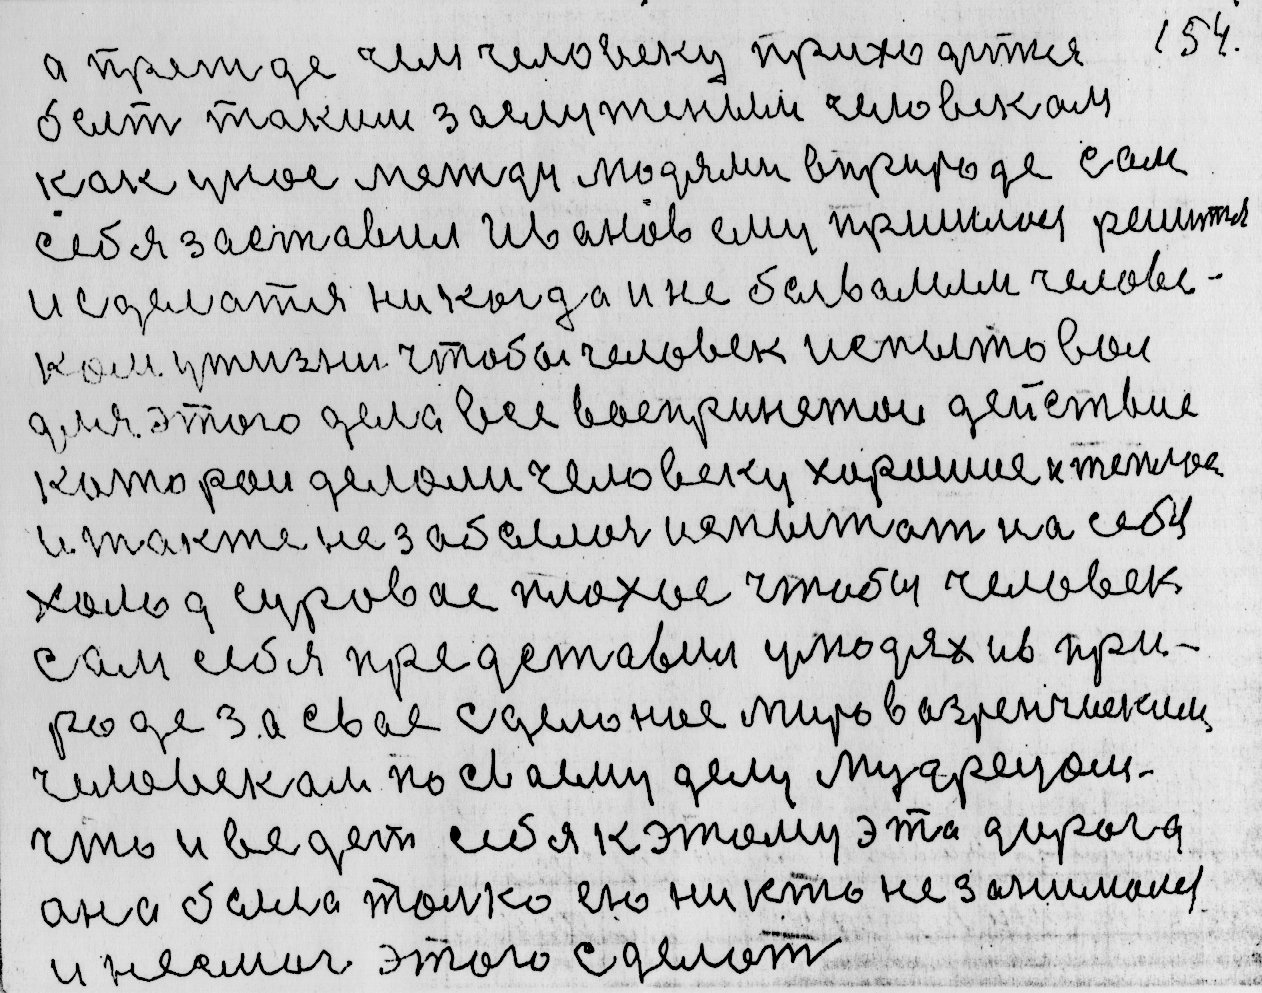 154.
а прежде чем человеку приходится
быть таким заслуженым человекам
как уное между людями вприроде сам
себя заставил Иванов ему пришлос решится
и сделатся никогда и не бывалым челове-
ком ужизни чтобы человек испытовал
для этого дела все воспринетои действие
каторои делали человеку хорошие и теплое
и также не забывал испытат на себе
холод суровае плохое чтобы человек
сам себя представил улюдях ив при-
роде за свае сделоние мировазренчиским
человекам по сваему делу мудрецом-
что и ведет себя к этому эта дорога
ана была толко ею никто не занималс
и несмог этого сделат